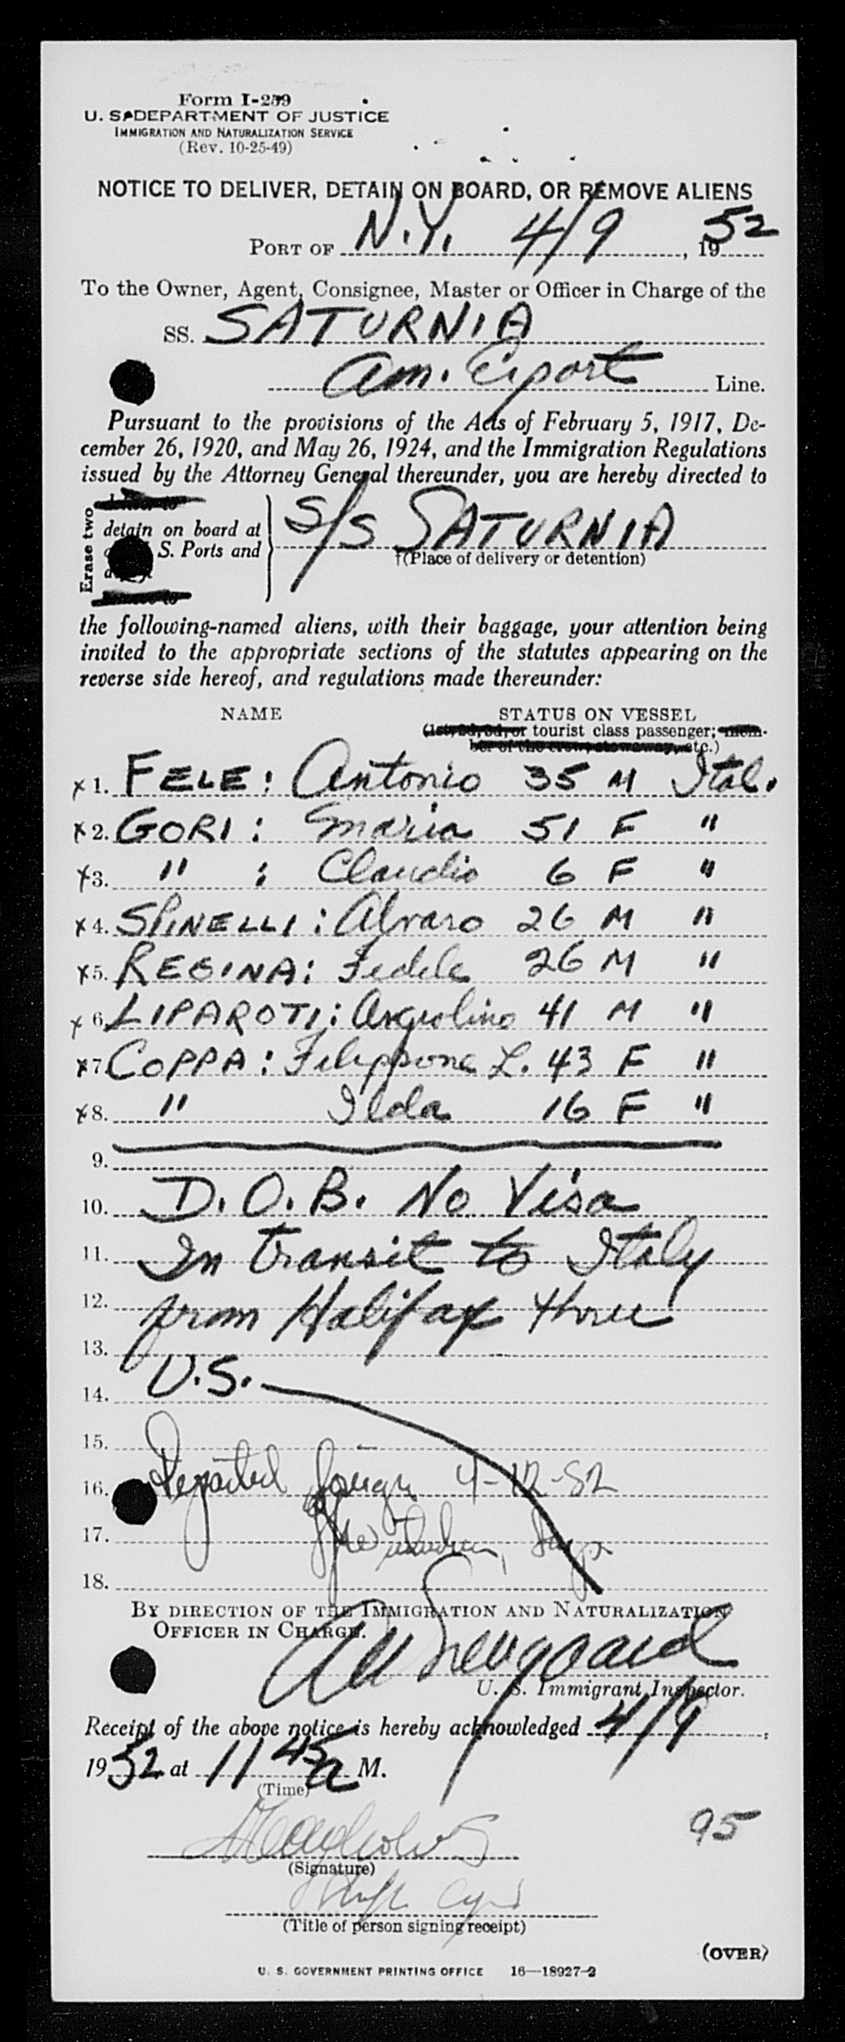 Form I-259
U. S. DEPARTMENT OF JUSTICE
IMMIGRATION AND NATURALIZATION SERVICE
(Rev. 10-25-49)
NOTICE TO DELIVER, DETAIN ON BOARD, OR REMOVE ALIENS
PORT OF N.Y. 4/9, 1952
To the Owner, Agent, Consignee, Master or Officer in Charge of the
SS. SATURNIA
Am. Export Line.
Pursuant to the provisions of the Acts of February 5, 1917, De-
cember 26, 1920, and May 26, 1924, and the Immigration Regulations
issued by the Attorney General thereunder, you are hereby directed to
Erase two
detain on board at
S. Ports and
S/S SATURNIA
†(Place of delivery or detention)
the following-named aliens, with their baggage, your attention being
invited to the appropriate sections of the statutes appearing on the
reverse side hereof, and regulations made thereunder:
NAME STATUS ON VESSEL
(1st, 2d, 3d, or tourist class passenger; mem-
ber of the crew, stowaway, etc.)
x 1. FELE: Antonio 35 M Ital.
x 2. GORI: Maria 51 F "
x 3. " : Claudio 6 F "
x 4. SPINELLI: Alvaro 26 M "
x 5. REGINA: Fedele 26 M "
x 6. LIPAROTI: Angiolino 41 M "
x 7. COPPA: Filippone L. 43 F "
x 8. " Ilda 16 F "
9.
10. D.O.B. No Visa
11. In transit to Italy
12. from Halifax thru
13.
14. U.S.
15.
16. Departed foreign 4-12-52
17.
18.
BY DIRECTION OF THE IMMIGRATION AND NATURALIZATION
OFFICER IN CHARGE.
U. S. Immigrant Inspector.
Receipt of the above notice is hereby acknowledged 4/9,
1952 at 11 45 a M.
(Time)
95
(Signature)
(Title of person signing receipt)
(OVER)
U. S. GOVERNMENT PRINTING OFFICE 16—18927-2